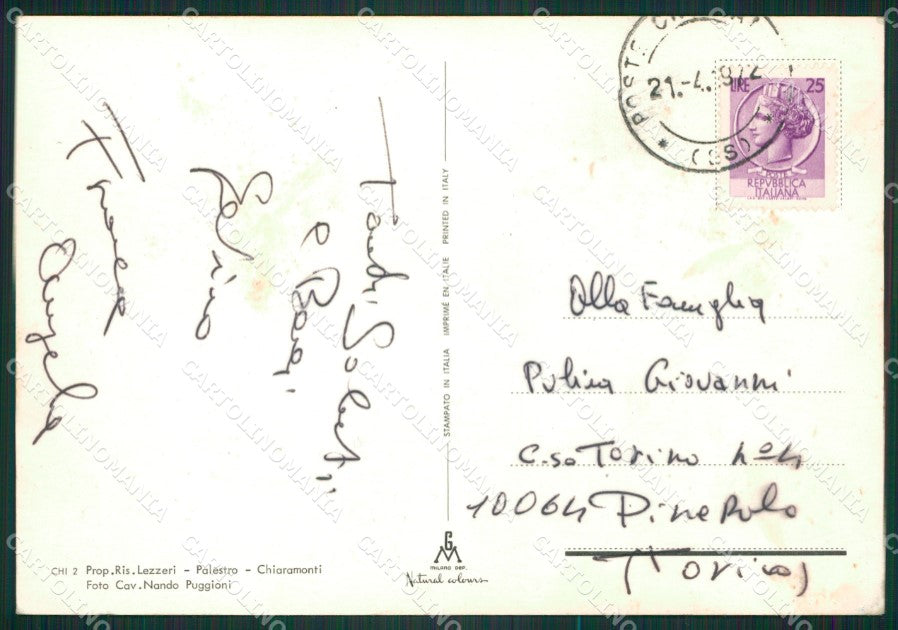 Tanti Saluti
e Baci
Franca
Angela
CHI 2 Prop. Ris. Lezzeri - Palestro - Chiaramonti
Foto Cav. Nando Puggioni
STAMPATO IN ITALIA IMPRIMÉ EN ITALIE PRINTED IN ITALY
G
M
MILANO DEP.
Natural colours
POSTE
21.-4.1972
(SS)
LIRE 25
POSTE
REPVBBLICA
ITALIANA
Alla Famiglia
Pulina Giovanni
C.so Torino nº 4
10064 Pinerolo
(Torino)
CARTOLINOMANIA